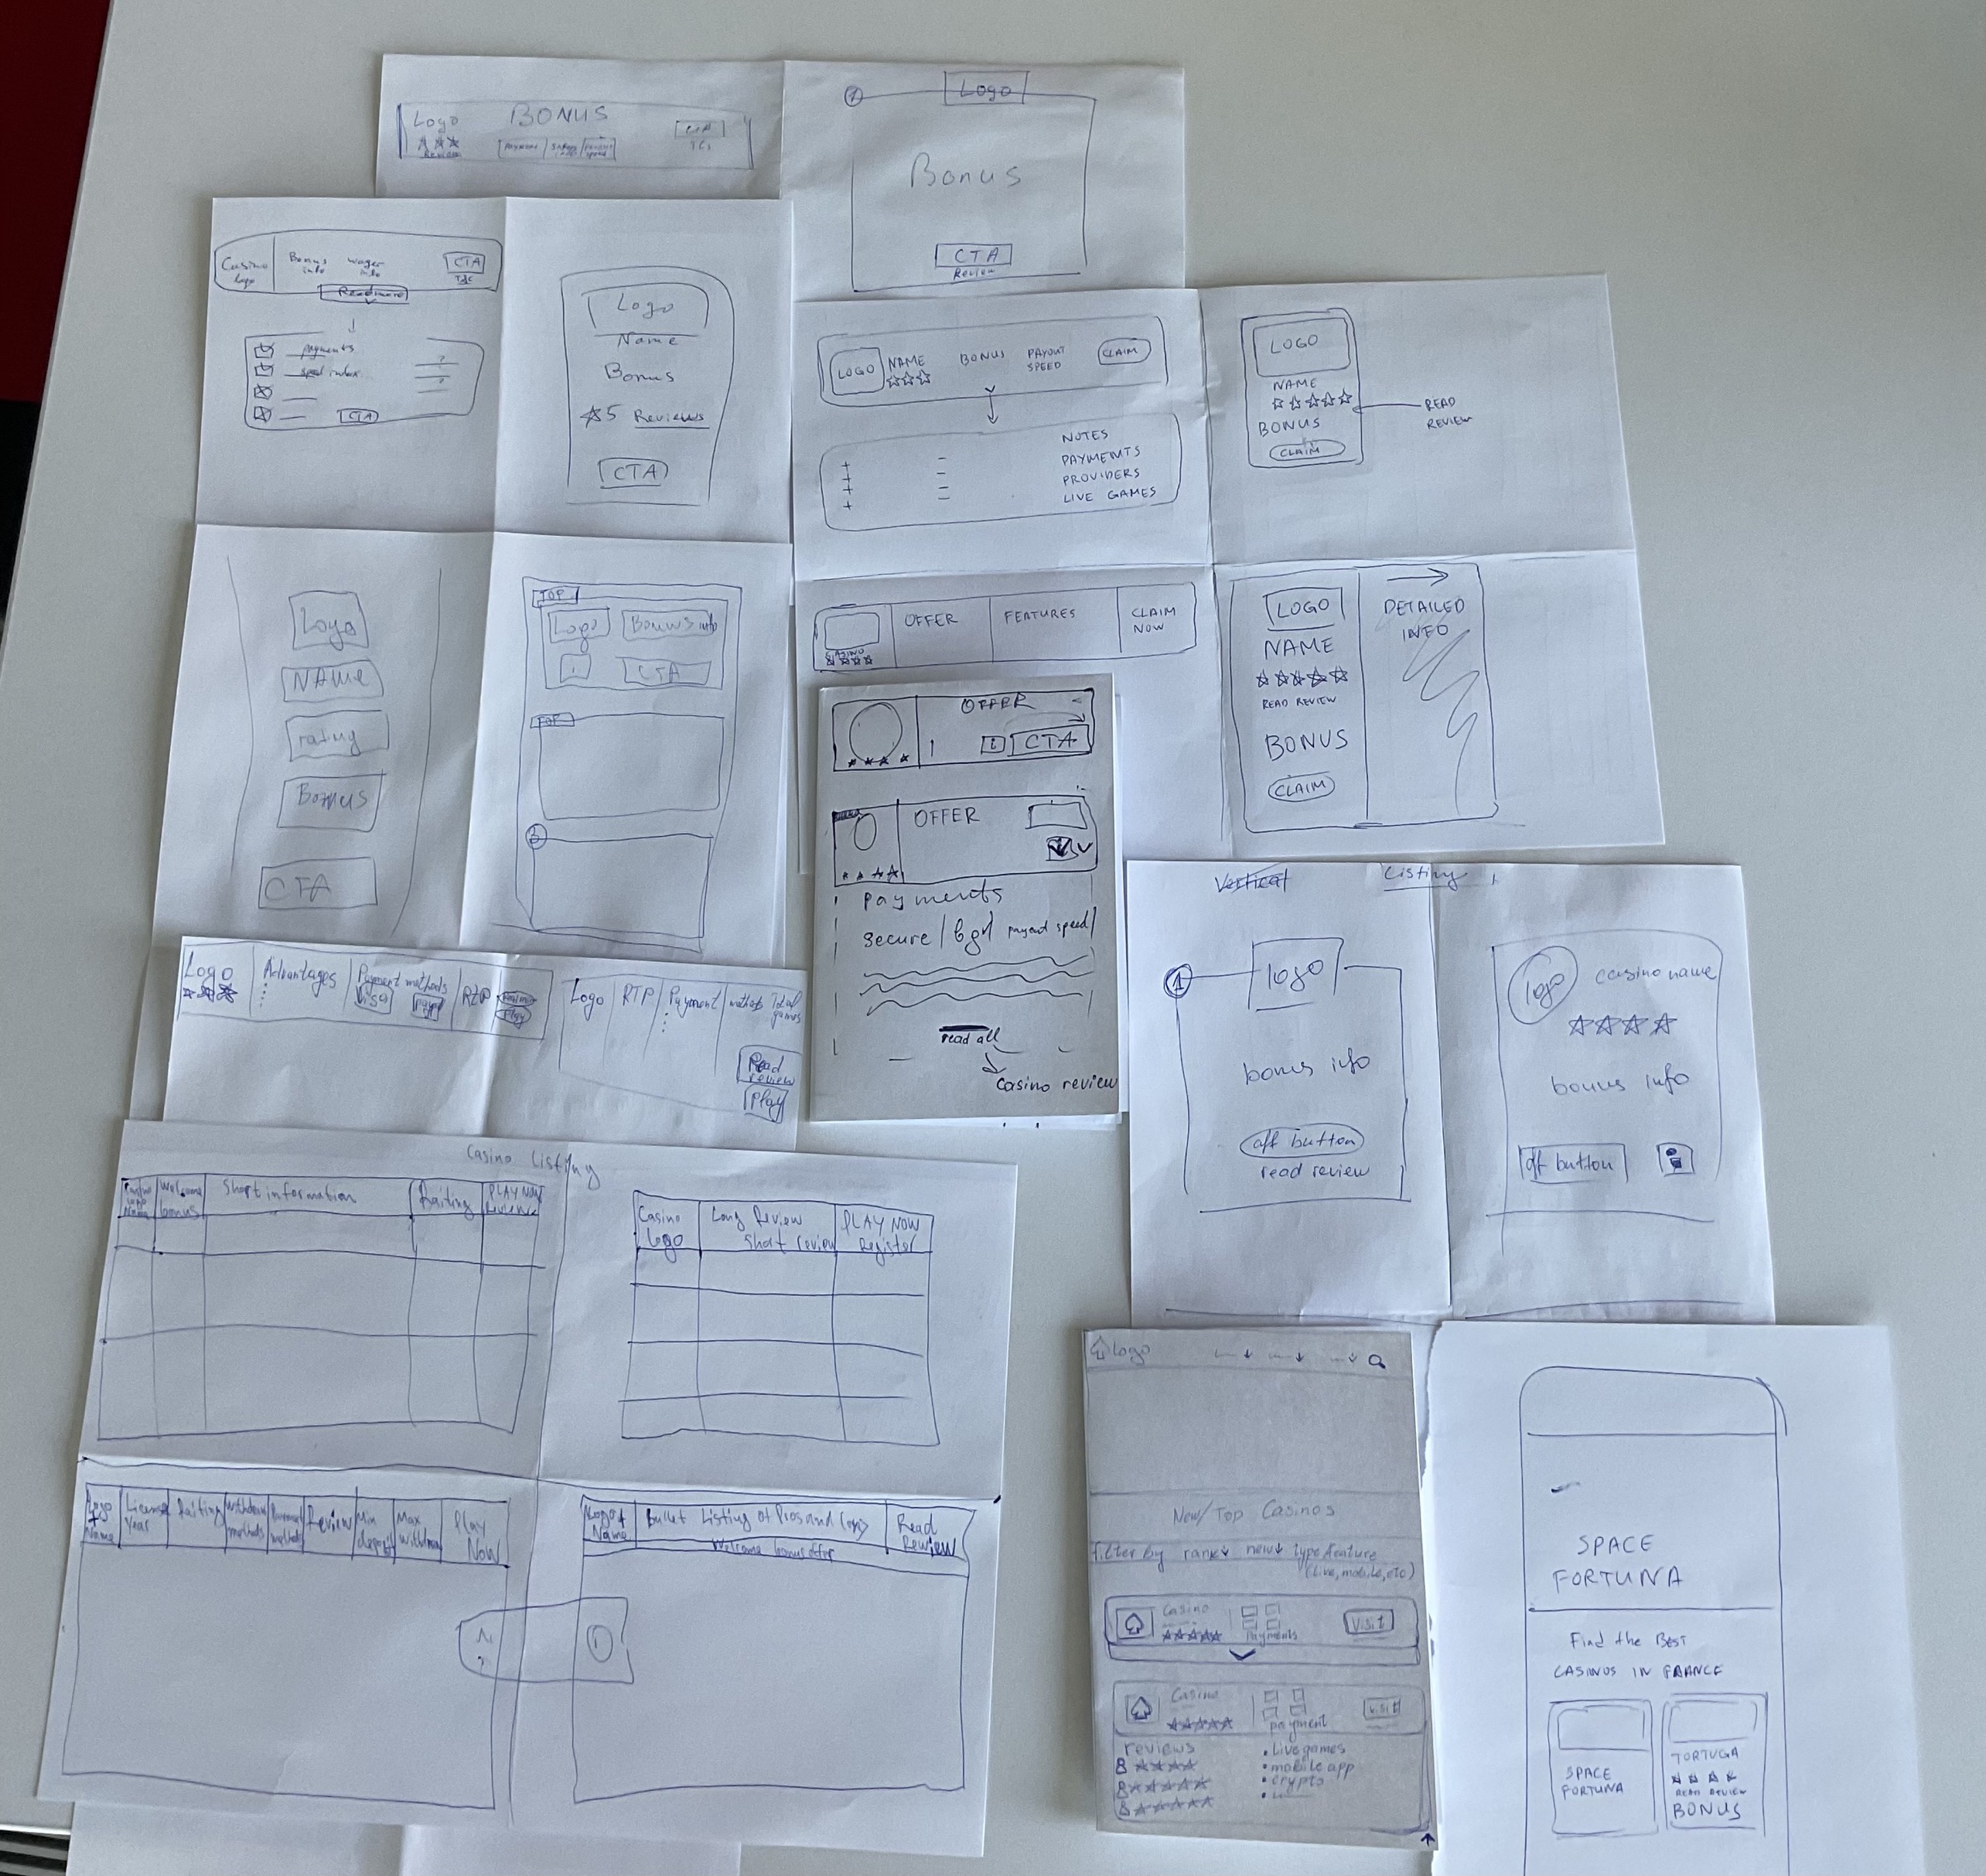 Logo
BONUS
Review
CTA
T&C
1
Logo
Bonus
CTA
Review
Casino
logo
Bonus
info
wager
info
CTA
T&C
Readmore
payments
speed index
CTA
Logo
Name
Bonus
5 Reviews
CTA
LOGO
NAME
BONUS
PAYOUT
SPEED
CLAIM
NOTES
PAYMENTS
PROVIDERS
LIVE GAMES
LOGO
NAME
BONUS
CLAIM
READ
REVIEW
Logo
NAMe
rating
Bonus
CTA
TOP
Logo
Bonus info
i
CTA
TOP
3
CASINO
OFFER
FEATURES
CLAIM
NOW
LOGO
NAME
READ REVIEW
BONUS
CLAIM
DETAILED
INFO
OFFER
i
CTA
OFFER
payments
secure / bgl payout speed/
read all
casino review
Vertical
Listing
1
logo
bonus info
aff button
read review
logo
casino name
bonus info
aff button
i
Logo
Advantages
Payment methods
Visa
RTP
Play
Logo
RTP
Payment
methods
Total
games
Read
review
Play
Casino Listing
Casino
Logo
Name
Welcome
bonus
Short information
Raiting
PLAY NOW
Casino
Logo
Long Review
Short review
PLAY NOW
Register
Logo
+
Name
License
Year
Raiting
Withdraw
methods
Payment
methods
Review
Min
deposit
Max
withdraw
Play
Now
Logo+
Name
Bullet Listing of Pros and Cons
Welcome bonus offer
Read
Review
Logo
New/Top Casinos
filter by rank new type/feature
(live, mobile, etc)
Casino
Payments
Visit
Casino
payment
visit
reviews
• Live games
• mobile app
• crypto
SPACE
FORTUNA
Find the Best
CASINOS IN FRANCE
SPACE
FORTUNA
TORTUGA
READ REVIEW
BONUS